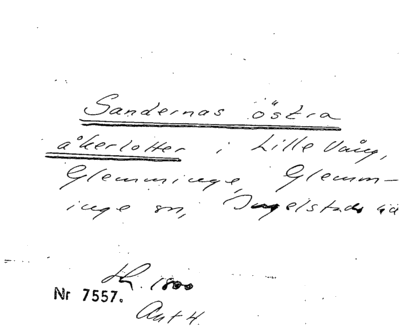 Sandernas östra
åkerlotter i Lille Vång,
Glemminge, Glemm-
inge sn, Ingelstads hä
1800
Nr 7557.
Akt 4.